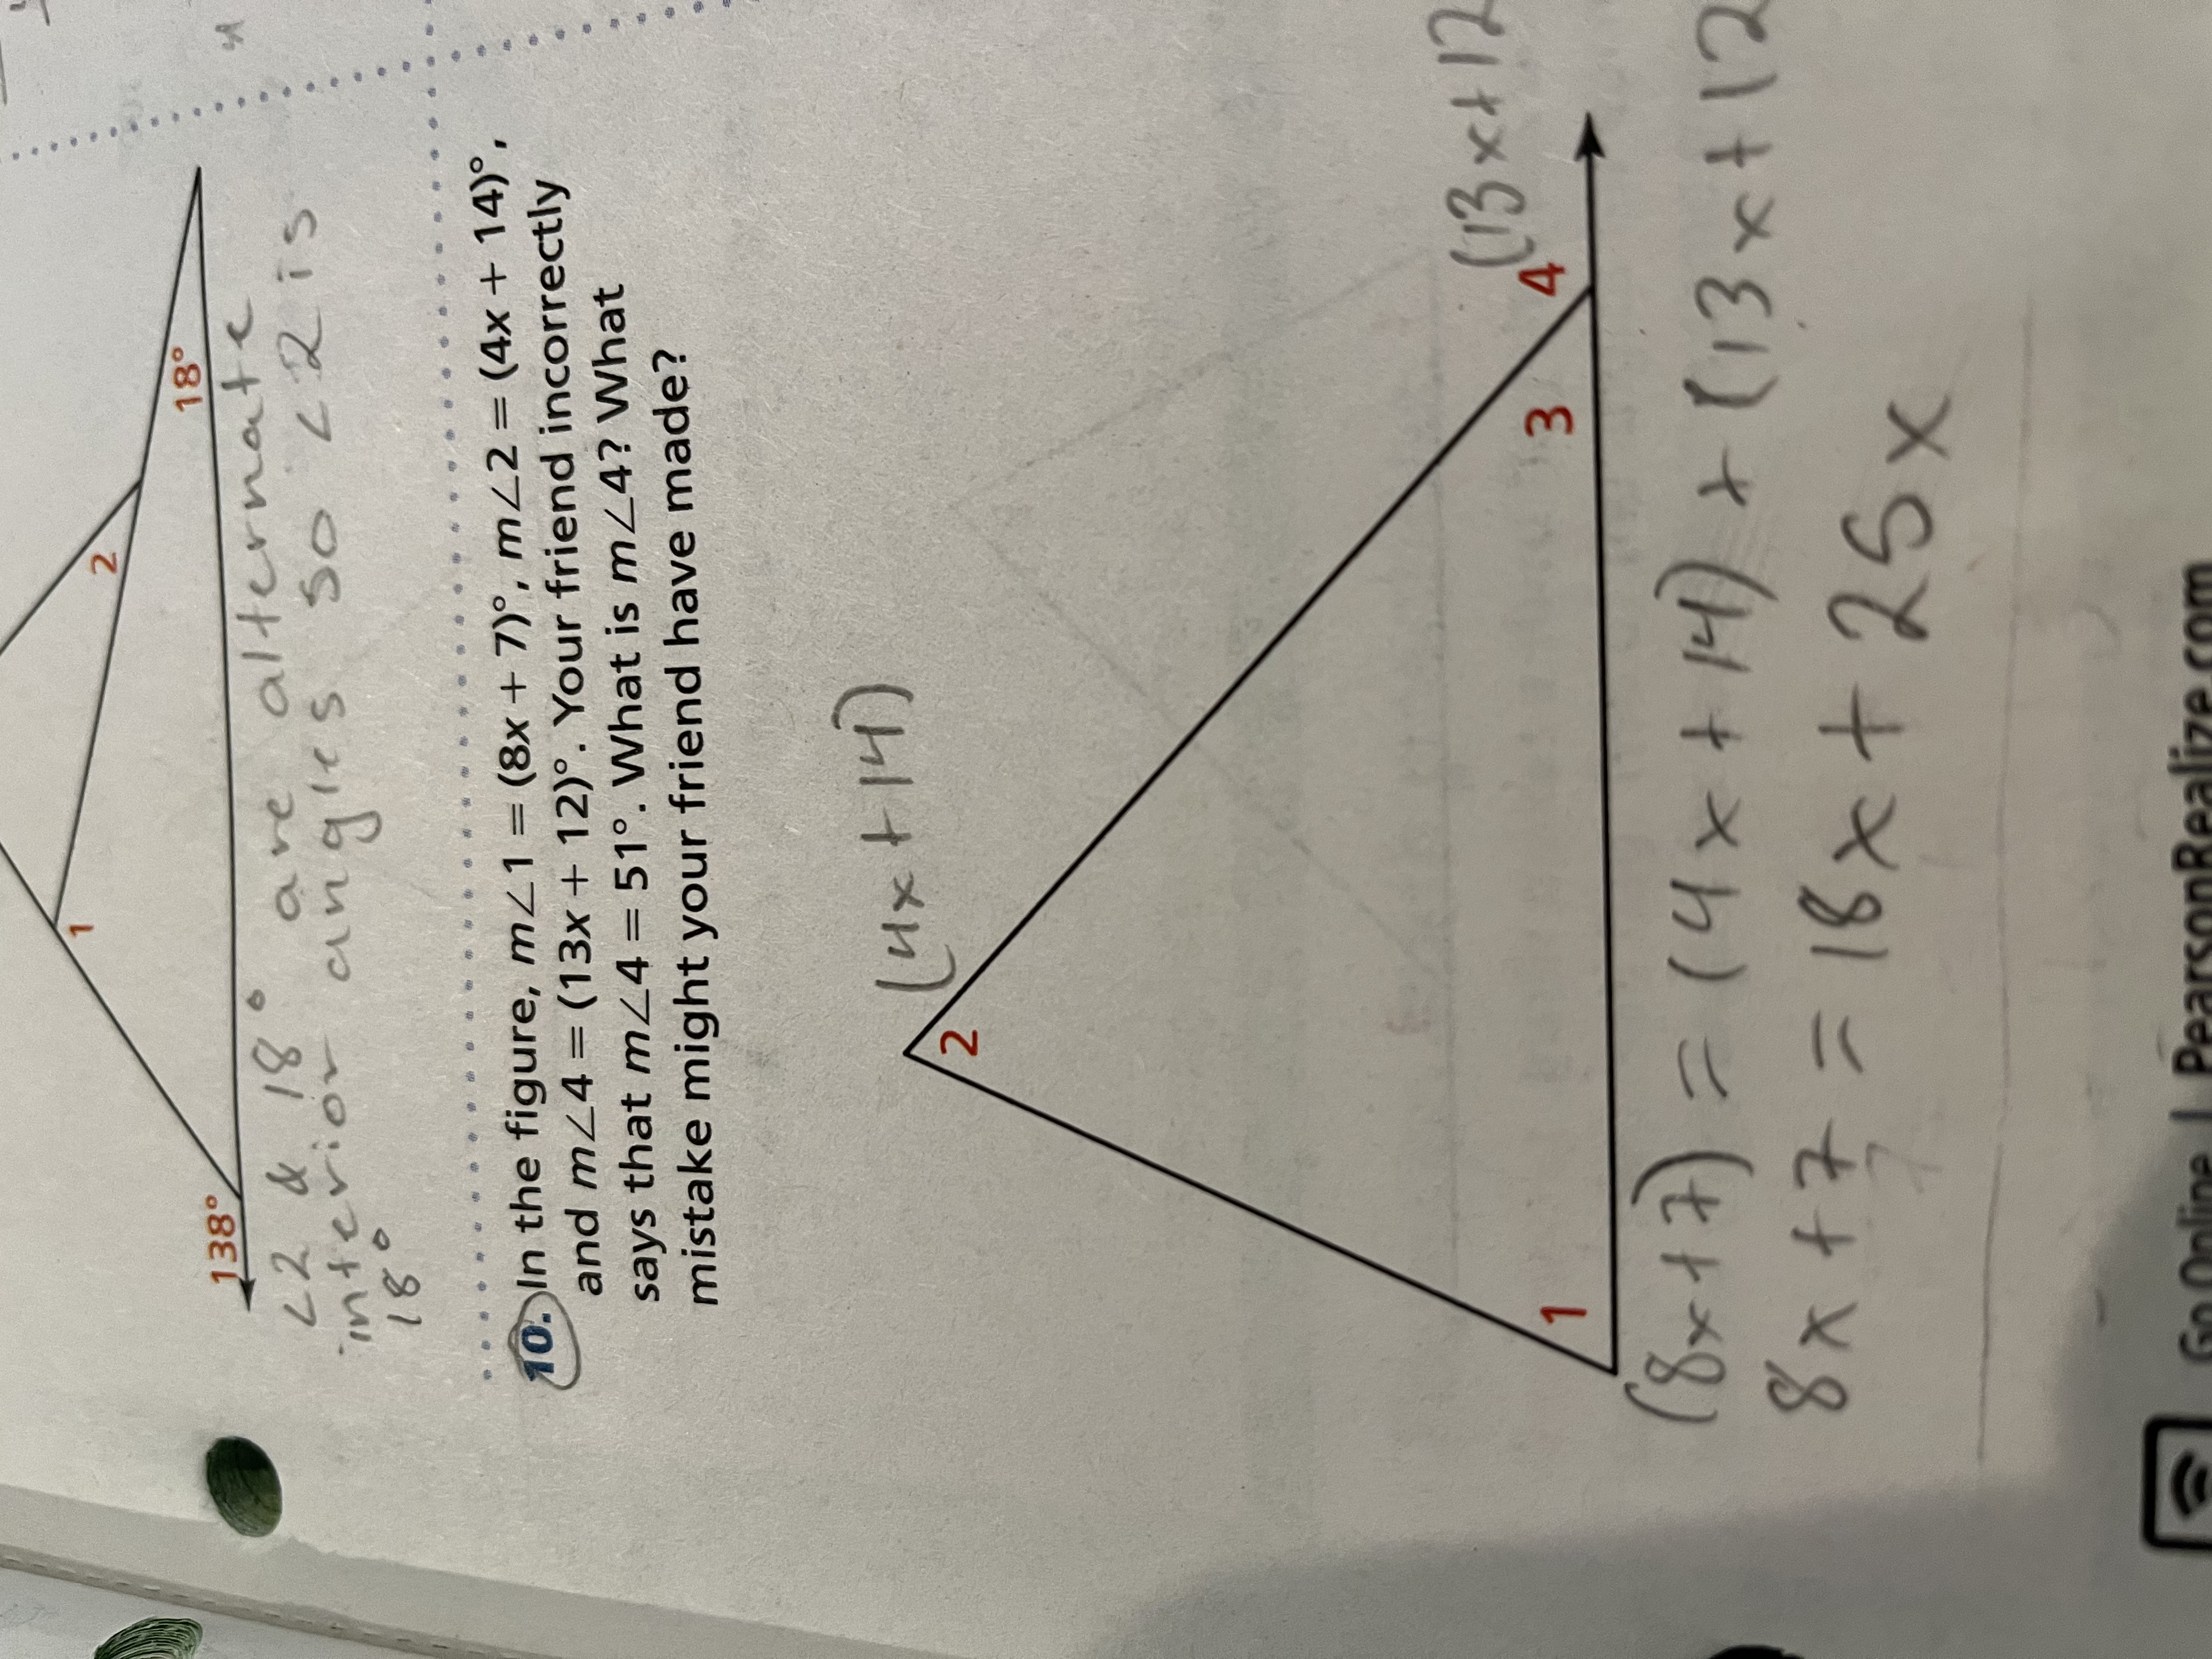 2
1
18°
138°
<2 & 18° are alternate
interior angles so <2 is
18°
10. In the figure, m∠1 = (8x + 7)°, m∠2 = (4x + 14)°,
and m∠4 = (13x + 12)°. Your friend incorrectly
says that m∠4 = 51°. What is m∠4? What
mistake might your friend have made?
(4x+14)
2
(13x+12
1
3
4
(8x+7) = (4x+14) + (13x+12
8x+7 = 18x+25x
Go Online | PearsonRealize.com